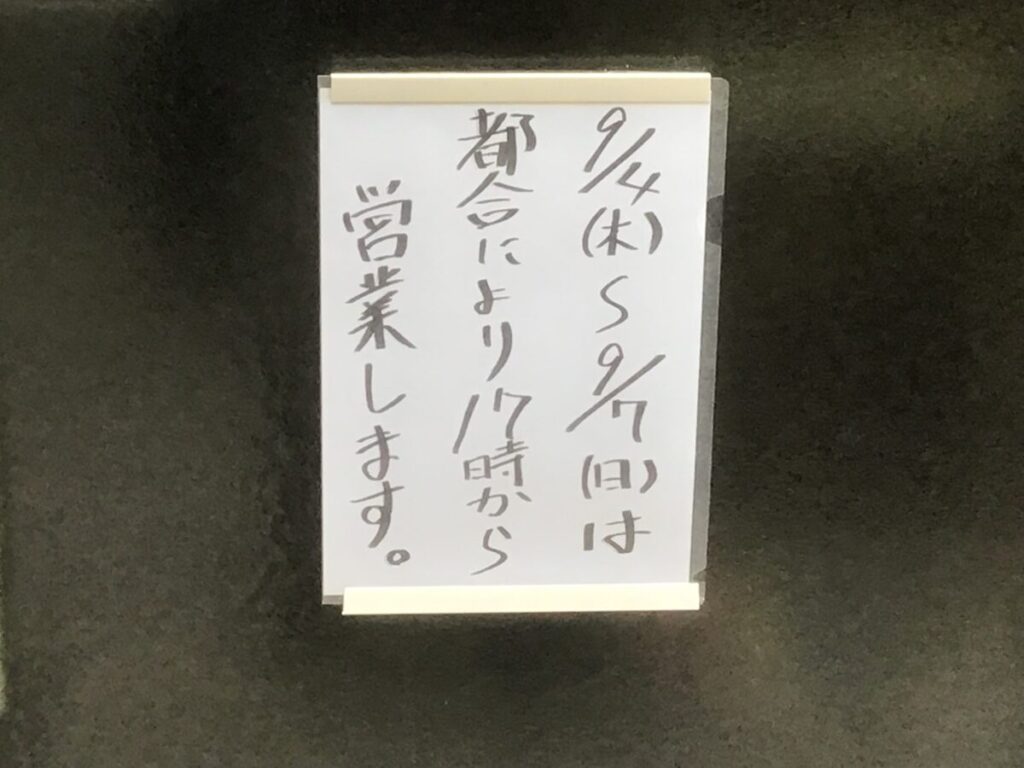 9/4(木)〜9/7(日)は
都合により17時から
営業します。